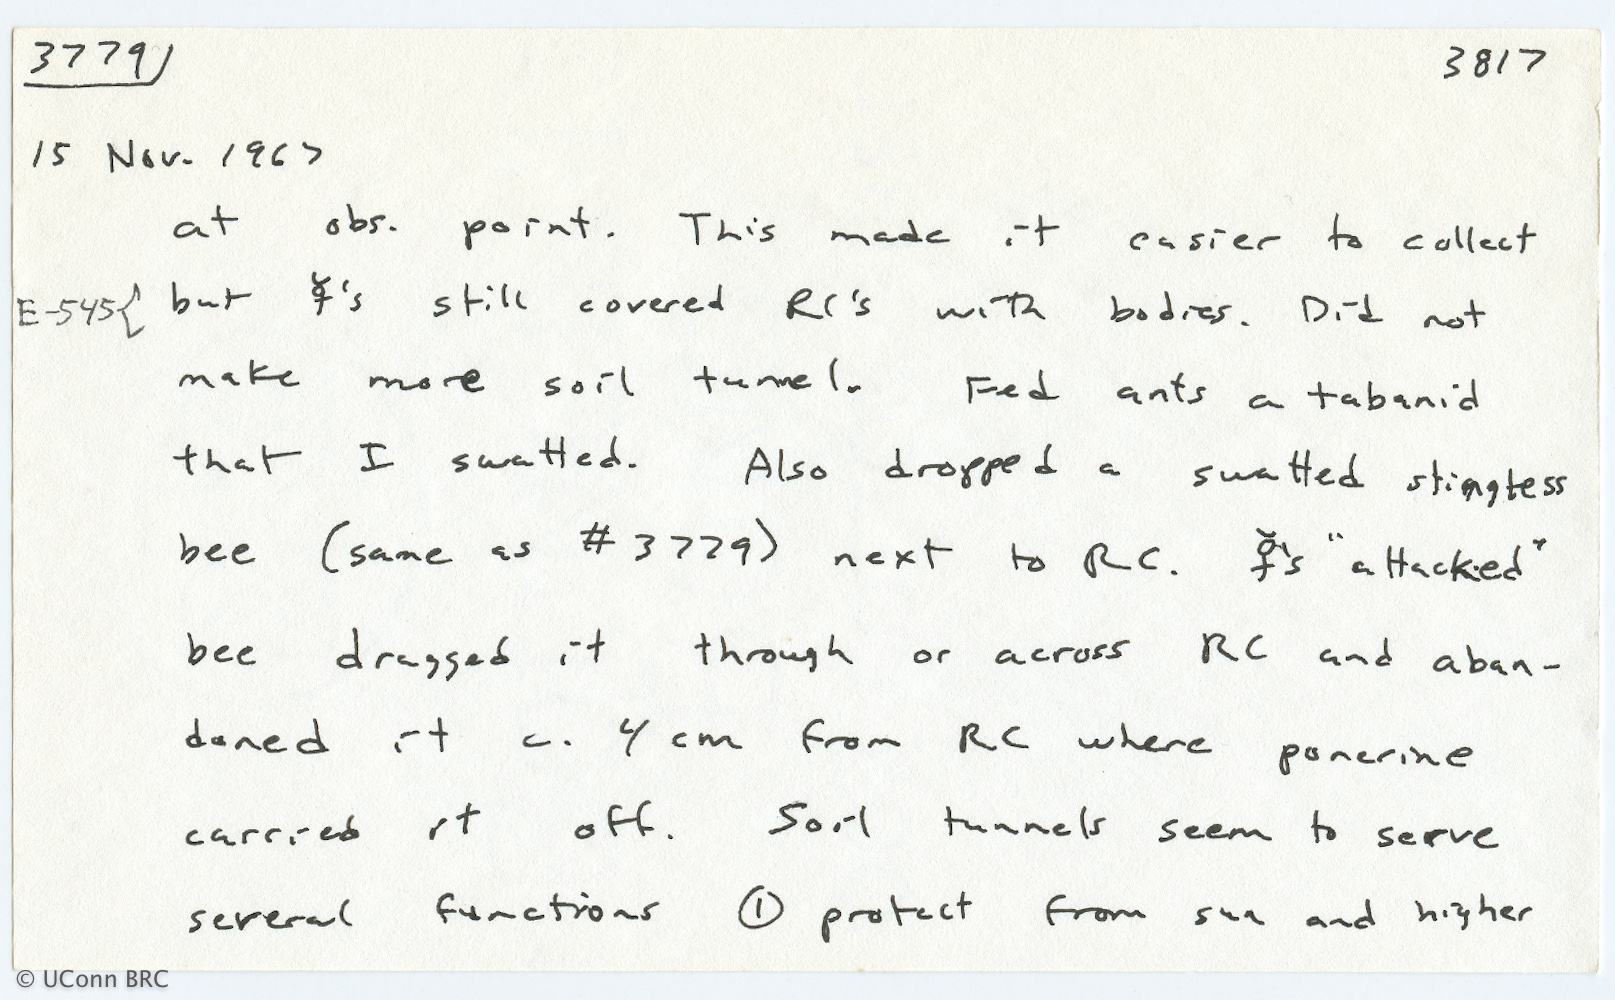 3779 3817
15 Nov. 1967
at obs. point. This made it easier to collect
E-545{ but ☿'s still covered RC's with bodies. Did not
make more soil tunnel. Fed ants a tabanid
that I swatted. Also dropped a swatted stingless
bee (same as #3779) next to RC. ☿'s "attacked"
bee dragged it through or across RC and aban-
doned it c. 4 cm from RC where ponerine
carried it off. Soil tunnels seem to serve
several functions ① protect from sun and higher
© UConn BRC